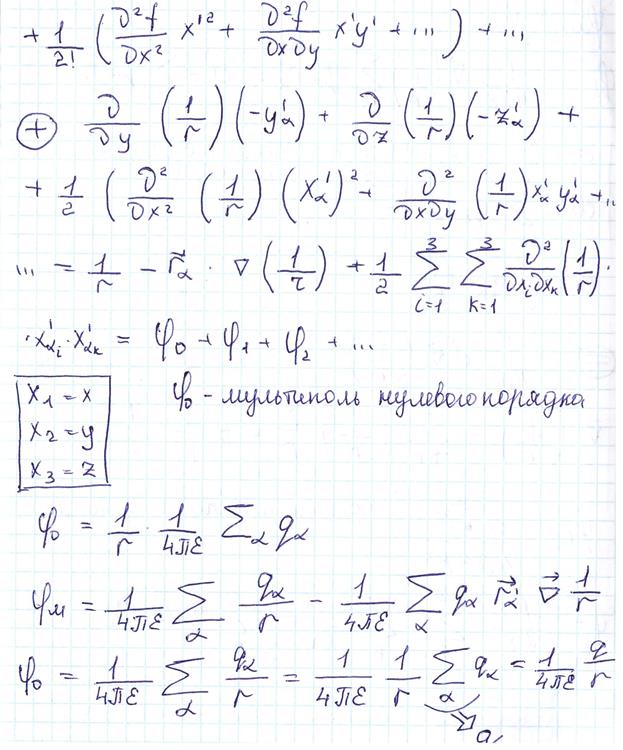 + 1/2! (∂²f/∂x² x'² + ∂²f/∂x∂y x'y' + ...) + ...
⊕ ∂/∂y (1/r) (-y'α) + ∂/∂z (1/r) (-z'α) +
+ 1/2 (∂²/∂x² (1/r) (x'α)² + ∂²/∂x∂y (1/r) x'α y'α + ..
... = 1/r - r⃗α · ∇ (1/r) + 1/2 ∑_{i=1}^{3} ∑_{k=1}^{3} ∂²/∂xi∂xk (1/r) ·
· x'αi · x'αk = φ0 + φ1 + φ2 + ...
x1 = x
x2 = y
x3 = z
φ0 - мультиполь нулевого порядка
φ0 = 1/r · 1/4πε ∑α qα
φм = 1/4πε ∑α qα/r - 1/4πε ∑α qα r⃗'α ∇⃗ 1/r
φ0 = 1/4πε ∑α qα/r = 1/4πε 1/r ∑α qα = 1/4πε q/r
q